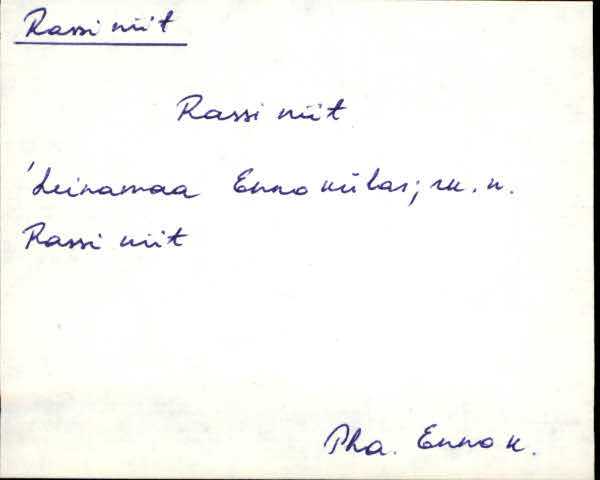 Rassi niit
Rassi niit
'heinamaa Enno külas; rk. n.
Rassi niit
Pha. Enno k.